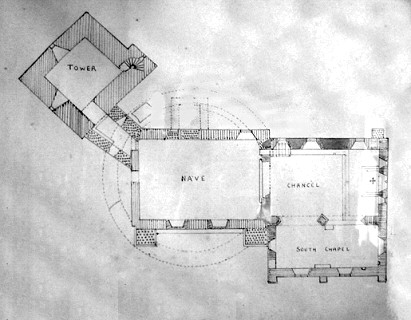 TOWER
NAVE
CHANCEL
SOUTH CHAPEL